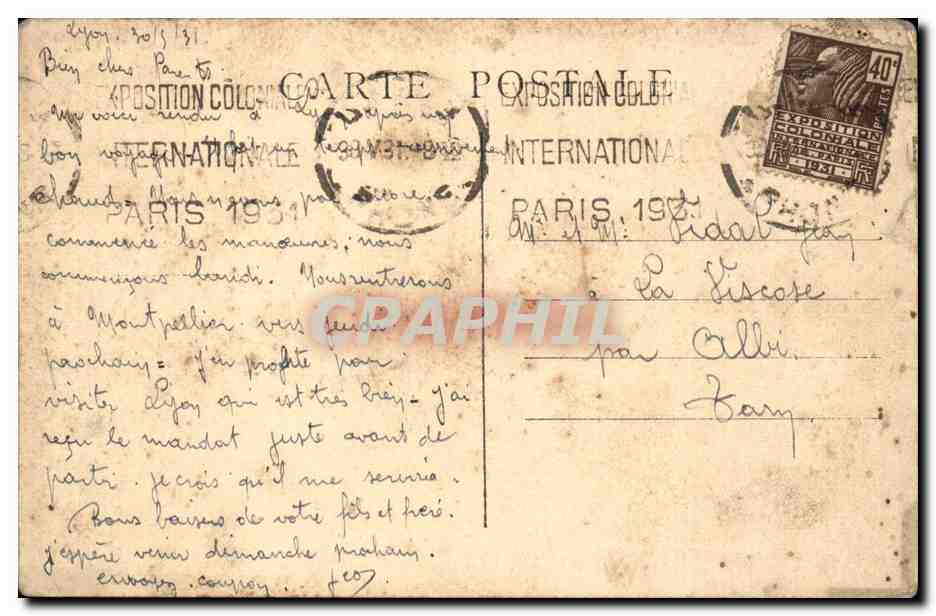 Lyon. 30/5/31
Bien chers Parents
CARTE POSTALE
EXPOSITION COLONIALE
INTERNATIONALE
PARIS 1931
Me voici rendu à Lyon après un
bon voyage
chaud. Nous n'avons pas encore
commencé les manœuvres, nous
commençons lundi. Nous rentrerons
à Montpellier vers jeudi
prochain = J'en profite pour
visiter Lyon qui est très bien - J'ai
reçu le mandat juste avant de
partir. Je crois qu'il me servira.
Bons baisers de votre fils et frère.
J'espère venir dimanche prochain.
envoyez coupon. Jean
EXPOSITION COLONIALE
INTERNATIONALE
PARIS 1931
40c
POSTES
EXPOSITION
COLONIALE
INTERNATIONALE
DE PARIS
1931
Mr et Mme Vidal Jean
à La Viscose
par Albi.
Tarn
CPAPHIL